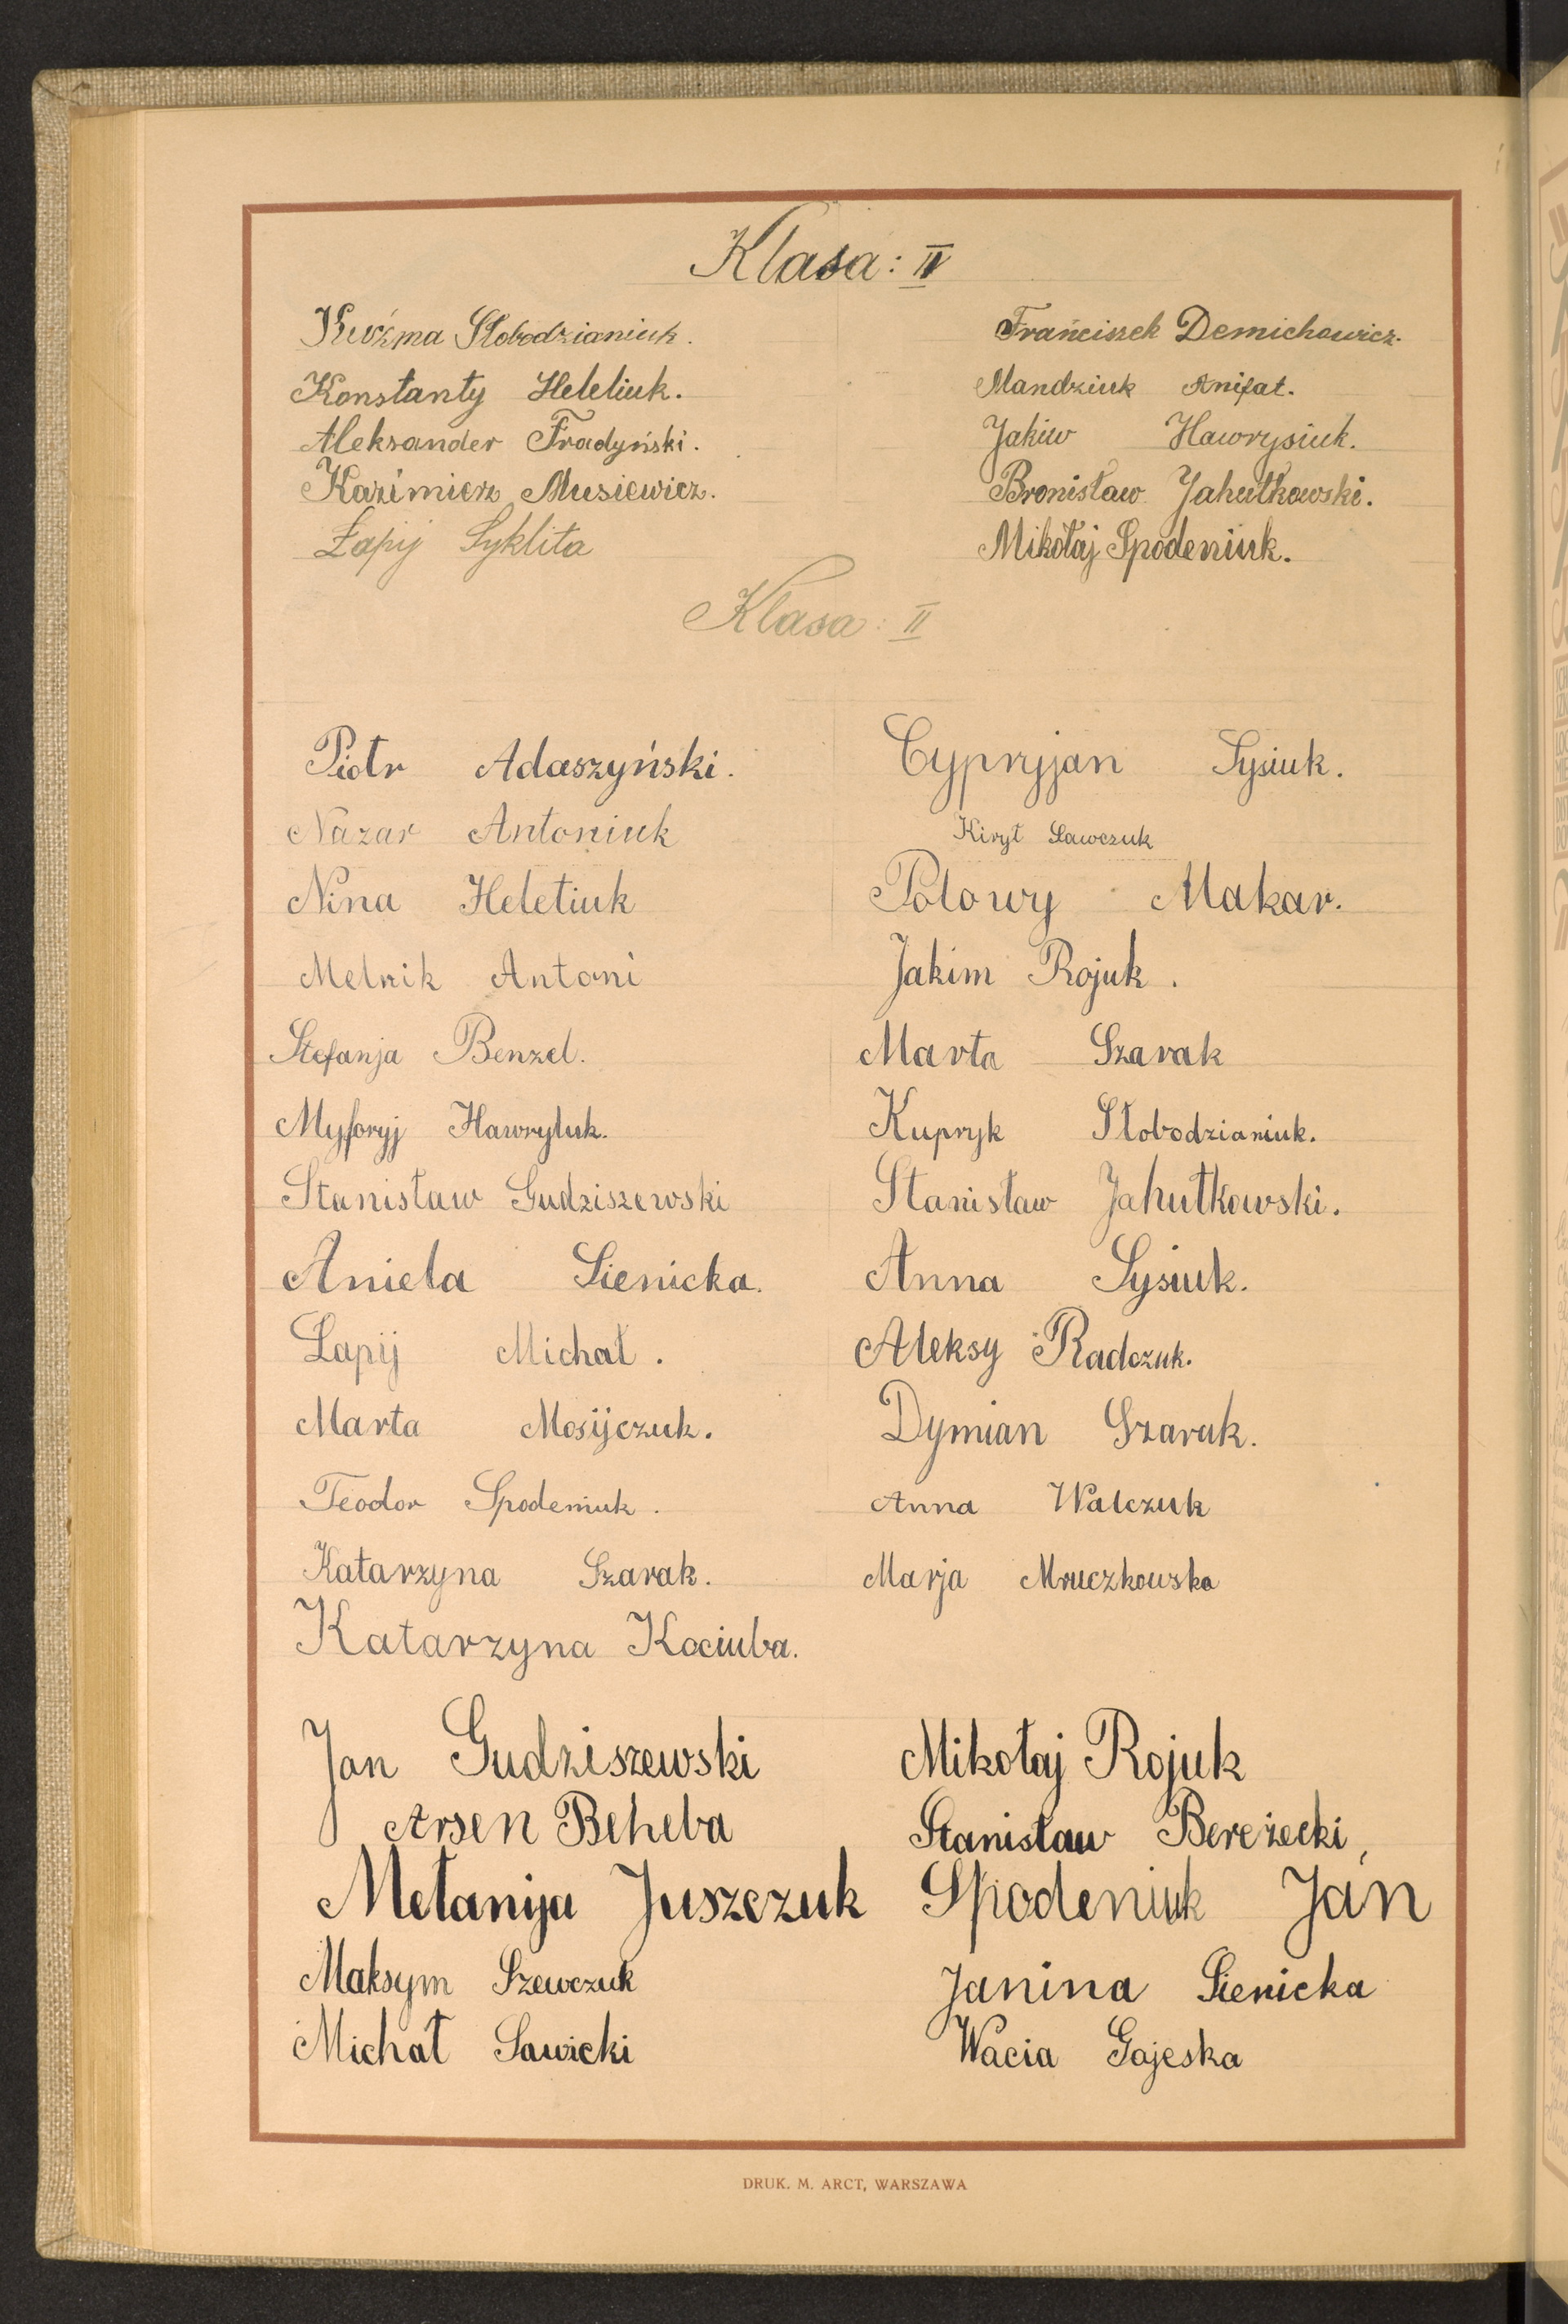 Klasa: IV
Kuźma Słobodzianiuk.
Konstanty Heleliuk.
Aleksander Fradyński.
Kazimierz Musiewicz.
Łapij Syklita
Franciszek Demichowicz.
Mandziuk Anifat.
Jakiw Hawrysiuk.
Bronisław Jahutkowski.
Mikołaj Spodeniuk.
Klasa: II
Piotr Adaszyński.
Nazar Antoniuk
Nina Heletiuk
Melnik Antoni
Stefanja Benzel.
Myforyj Hawryluk.
Stanisław Gudziszewski
Aniela Sienicka.
Łapij Michał.
Marta Mosijczuk.
Teodor Spodeniuk.
Katarzyna Szarak.
Katarzyna Kociuba.
Cypryjan Sysiuk.
Kirył Sawczuk
Polowy Makar.
Jakim Rojuk.
Marta Szarak
Kupryk Słobodzianiuk.
Stanisław Jahutkowski.
Anna Sysiuk.
Aleksy Radczuk.
Dymian Szaruk.
Anna Walczuk
Marja Mruczkowska
Jan Gudziszewski
Arsen Beheba
Melanija Juszczuk
Maksym Szewczuk
Michał Sawicki
Mikołaj Rojuk
Stanisław Bereżecki,
Spodeniuk Jan
Janina Sienicka
Wacia Gajeska
DRUK. M. ARCT, WARSZAWA